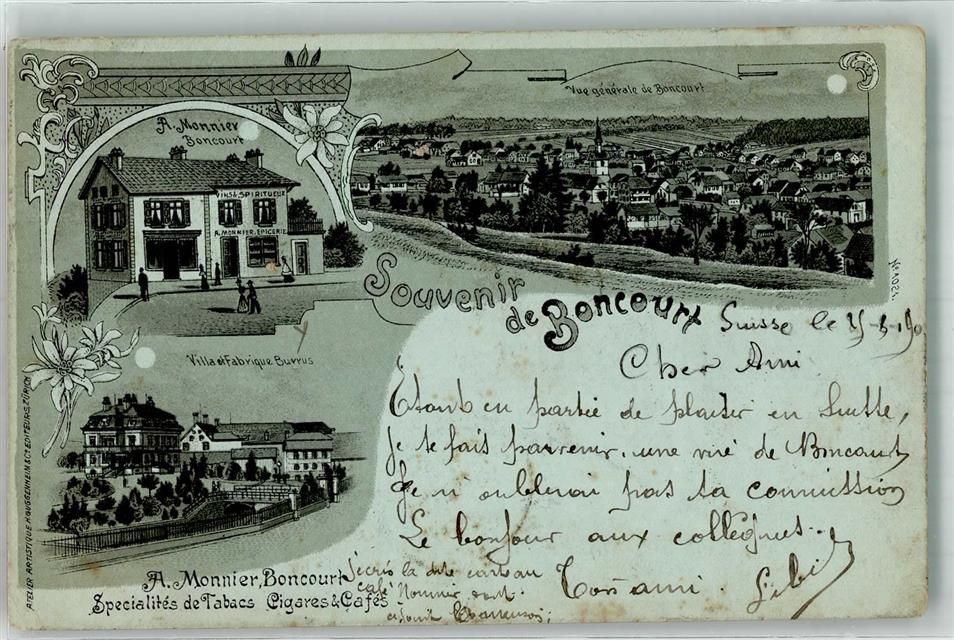 A. Monnier
Boncourt
VINS & SPIRITUEUX
A. MONNIER. EPICERIE
Vue générale de Boncourt
Souvenir
de Boncourt
Suisse le
Cher Ami
Etant en partie de plaisir en Suisse,
je te fais parvenir une vue de Boncourt
Je n'oublierai pas ta commission
Le bonjour aux collègues.
Ton ami
Villa et Fabrique Burrus
A. Monnier, Boncourt
Spécialités de Tabacs Cigares & Cafés
j'écris la dite carte au
café Monnier
ATELIER ARTISTIQUE H. GUGGENHEIM & Cº EDITEURS, ZÜRICH